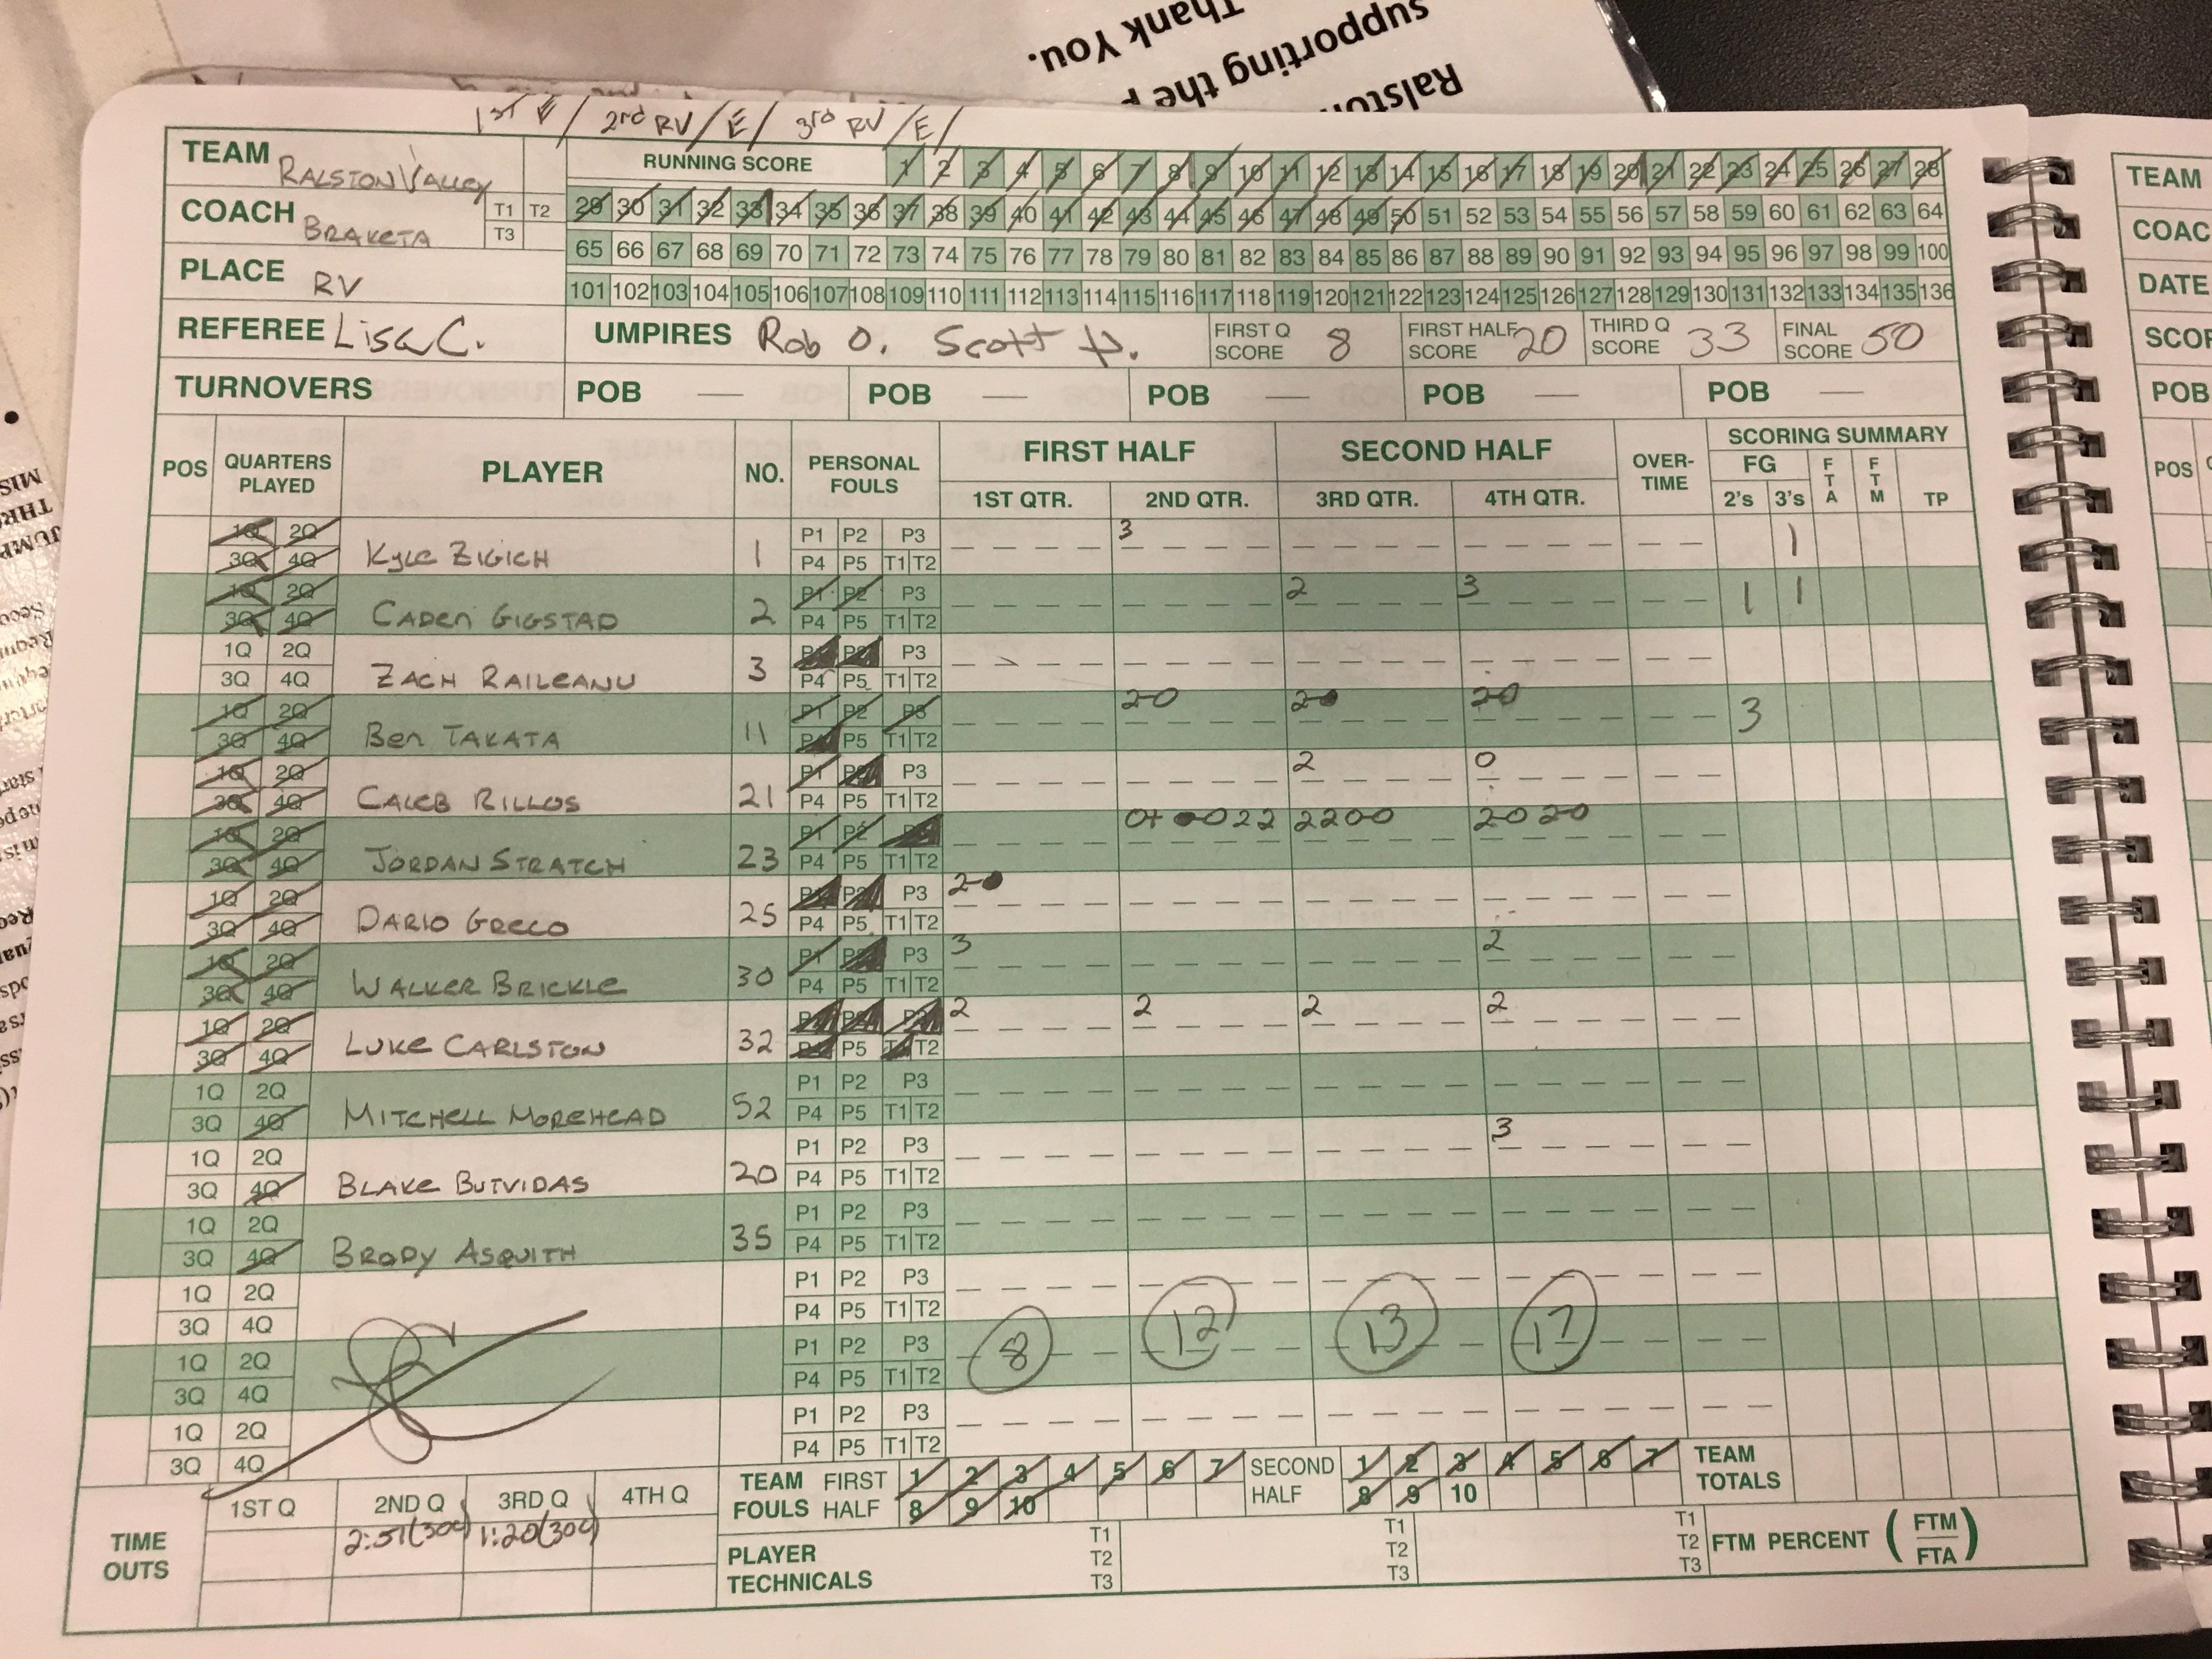 Thank You.
supporting the
Ralston
1st E / 2nd RV / E / 3rd RV / E /
TEAM RALSTON VALLEY
RUNNING SCORE 1 2 3 4 5 6 7 8 9 10 11 12 13 14 15 16 17 18 19 20 21 22 23 24 25 26 27 28
COACH BRAKETA T1 T2 T3
29 30 31 32 33 34 35 36 37 38 39 40 41 42 43 44 45 46 47 48 49 50 51 52 53 54 55 56 57 58 59 60 61 62 63 64
65 66 67 68 69 70 71 72 73 74 75 76 77 78 79 80 81 82 83 84 85 86 87 88 89 90 91 92 93 94 95 96 97 98 99 100
PLACE RV
101 102 103 104 105 106 107 108 109 110 111 112 113 114 115 116 117 118 119 120 121 122 123 124 125 126 127 128 129 130 131 132 133 134 135 136
REFEREE Lisa C. UMPIRES Rob O. Scott FIRST Q SCORE 8 FIRST HALF SCORE 20 THIRD Q SCORE 33 FINAL SCORE 50
TURNOVERS POB — POB — POB — POB — POB —
POS QUARTERS PLAYED PLAYER NO. PERSONAL FOULS FIRST HALF SECOND HALF OVER-TIME SCORING SUMMARY
1ST QTR. 2ND QTR. 3RD QTR. 4TH QTR. FG 2's 3's FTA FTM TP
1Q 2Q P1 P2 P3 3
3Q 4Q KYLE ZIGICH 1 P4 P5 T1 T2 1
1Q 2Q P1 P2 P3 2 3
3Q 4Q CADEN GIGSTAD 2 P4 P5 T1 T2 1 1
1Q 2Q P1 P2 P3
3Q 4Q ZACH RAILEANU 3 P4 P5 T1 T2
1Q 2Q P1 P2 P3 20 2 20
3Q 4Q BEN TAKATA 11 P4 P5 T1 T2 3
1Q 2Q P1 P2 P3 2 0
3Q 4Q CALEB RILLOS 21 P4 P5 T1 T2
1Q 2Q P1 P2 P3 022 2200 2020
3Q 4Q JORDAN STRATCH 23 P4 P5 T1 T2
1Q 2Q P1 P2 P3 2
3Q 4Q DARIO GRECO 25 P4 P5 T1 T2
1Q 2Q P1 P2 P3 3 2
3Q 4Q WALKER BRICKLE 30 P4 P5 T1 T2
1Q 2Q P1 P2 P3 2 2 2 2
3Q 4Q LUKE CARLSTON 32 P4 P5 T1 T2
1Q 2Q P1 P2 P3
3Q 4Q MITCHELL MOREHEAD 52 P4 P5 T1 T2
1Q 2Q P1 P2 P3 3
3Q 4Q BLAKE BUTVIDAS 20 P4 P5 T1 T2
1Q 2Q P1 P2 P3
3Q 4Q BRODY ASQUITH 35 P4 P5 T1 T2
1Q 2Q P1 P2 P3
3Q 4Q P4 P5 T1 T2
1Q 2Q P1 P2 P3 8 12 13 17
3Q 4Q P4 P5 T1 T2
1Q 2Q P1 P2 P3
3Q 4Q P4 P5 T1 T2
TIME OUTS 1ST Q 2ND Q 3RD Q 4TH Q
2:51(30) 1:20(30)
TEAM FOULS FIRST HALF 1 2 3 4 5 6 7 8 9 10 SECOND HALF 1 2 3 4 5 6 7 8 9 10 TEAM TOTALS
PLAYER TECHNICALS T1 T2 T3 T1 T2 T3 T1 T2 T3 FTM PERCENT (FTM/FTA)
TEAM
COAC
DATE
SCOR
POB
POS